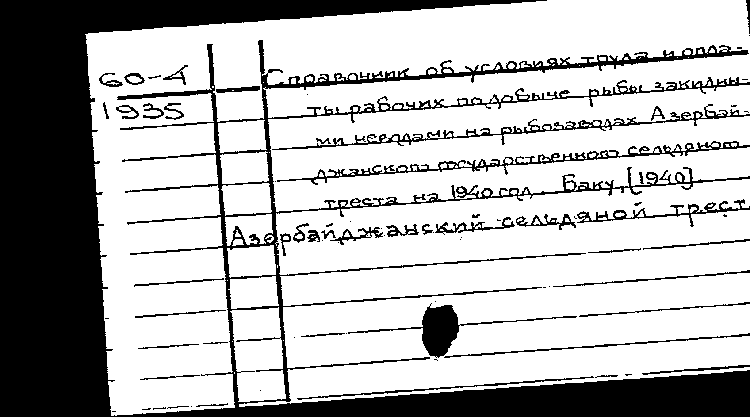 60-4
1935
Справочник об условиях труда и опла-
ты рабочих по добыче рыбы закидны-
ми неводами на рыбозаводах Азербай-
джанского государственного сельдяного
треста на 1940 год. Баку, [1940].
Азербайджанский сельдяной трест